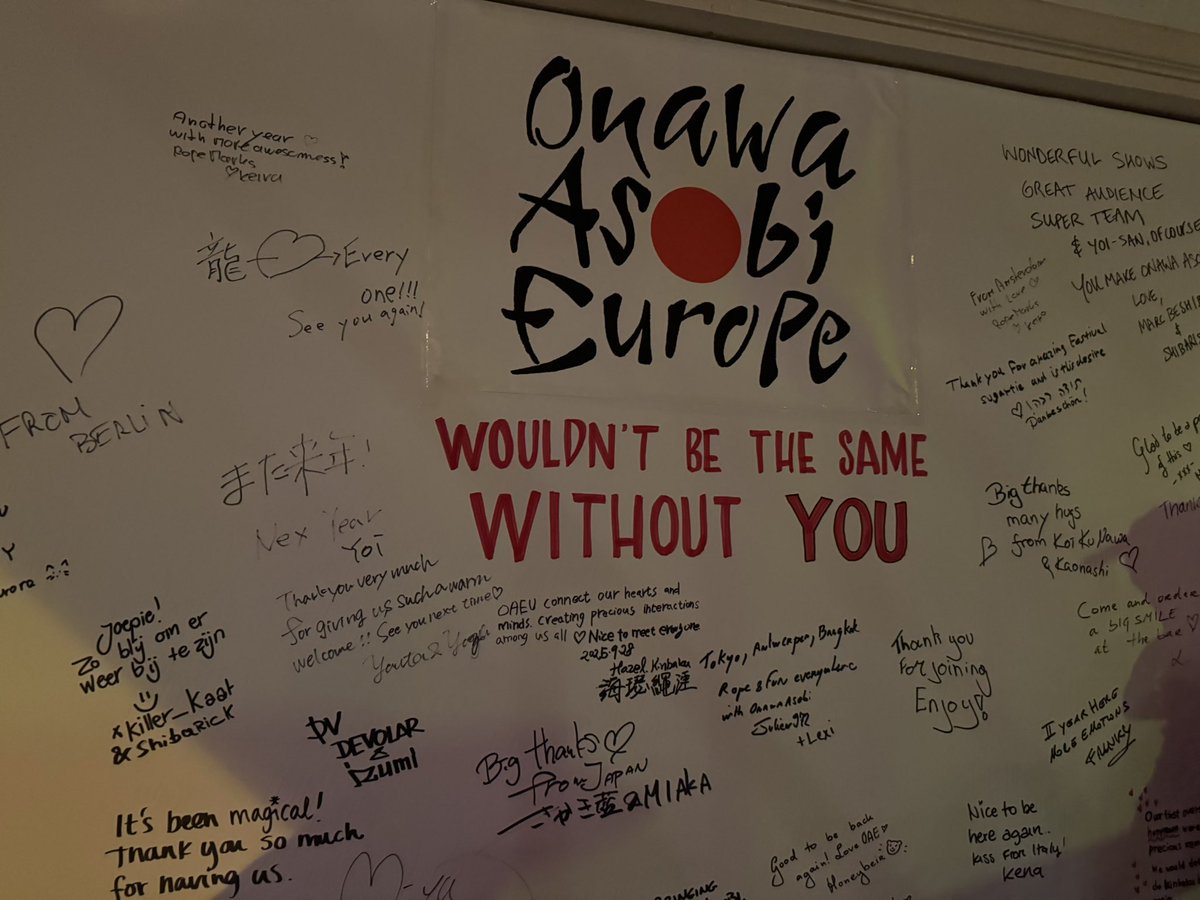 Onawa
Asobi
Europe
WOULDN'T BE THE SAME
WITHOUT YOU
Another year ♡
with more awesomness!
RopeMarks
♡ Keira
龍 ♡→ Every
one!!!
See you again!
FROM
BERLIN
また来年!
Nex Year
YOI
Thank you very much
for giving us such a warm
welcome!! See you next time♡
Joepie!
Zo blij om er
weer bij te zijn
x Killer_Kaat
& ShibaRick
DV
DEVOLAR
&
izumi
It's been magical!
Thank you so much
for having us.
OAEU connect our hearts and
minds. creating precious interactions
among us all ♡ Nice to meet everyone
2025.9.28
Hazel Kinbaku
Tokyo, Antwerpen, Bangkok
Rope & Fun everywhere
with OnawaAsobi
+ Lexi
Big thanks ♡
from JAPAN
& MIAKA
Thank you
for joining
Enjoy!
Good to be back
again! Love OAE
Honeybear
WONDERFUL SHOWS
GREAT AUDIENCE
SUPER TEAM
& YOI-SAN, OF COURSE
YOU MAKE ONAWA ASO
LOVE,
MARC BESHIB
&
SHIBARIS
From Amsterdam
with Love ♡
RopeMarks
Thank you for amazing Eastival
Dankeschön!
Glad to be a p
of this ♡
-xxx-
Big thanks
many hugs
from Koi Ku Nawa
& Kaonashi ♡
Come and order
a big SMILE
at the bar ♡
II YEAR HERE
MORE EMOTIONS
FUNKY
Nice to be
here again..
kiss from Italy!
Kena